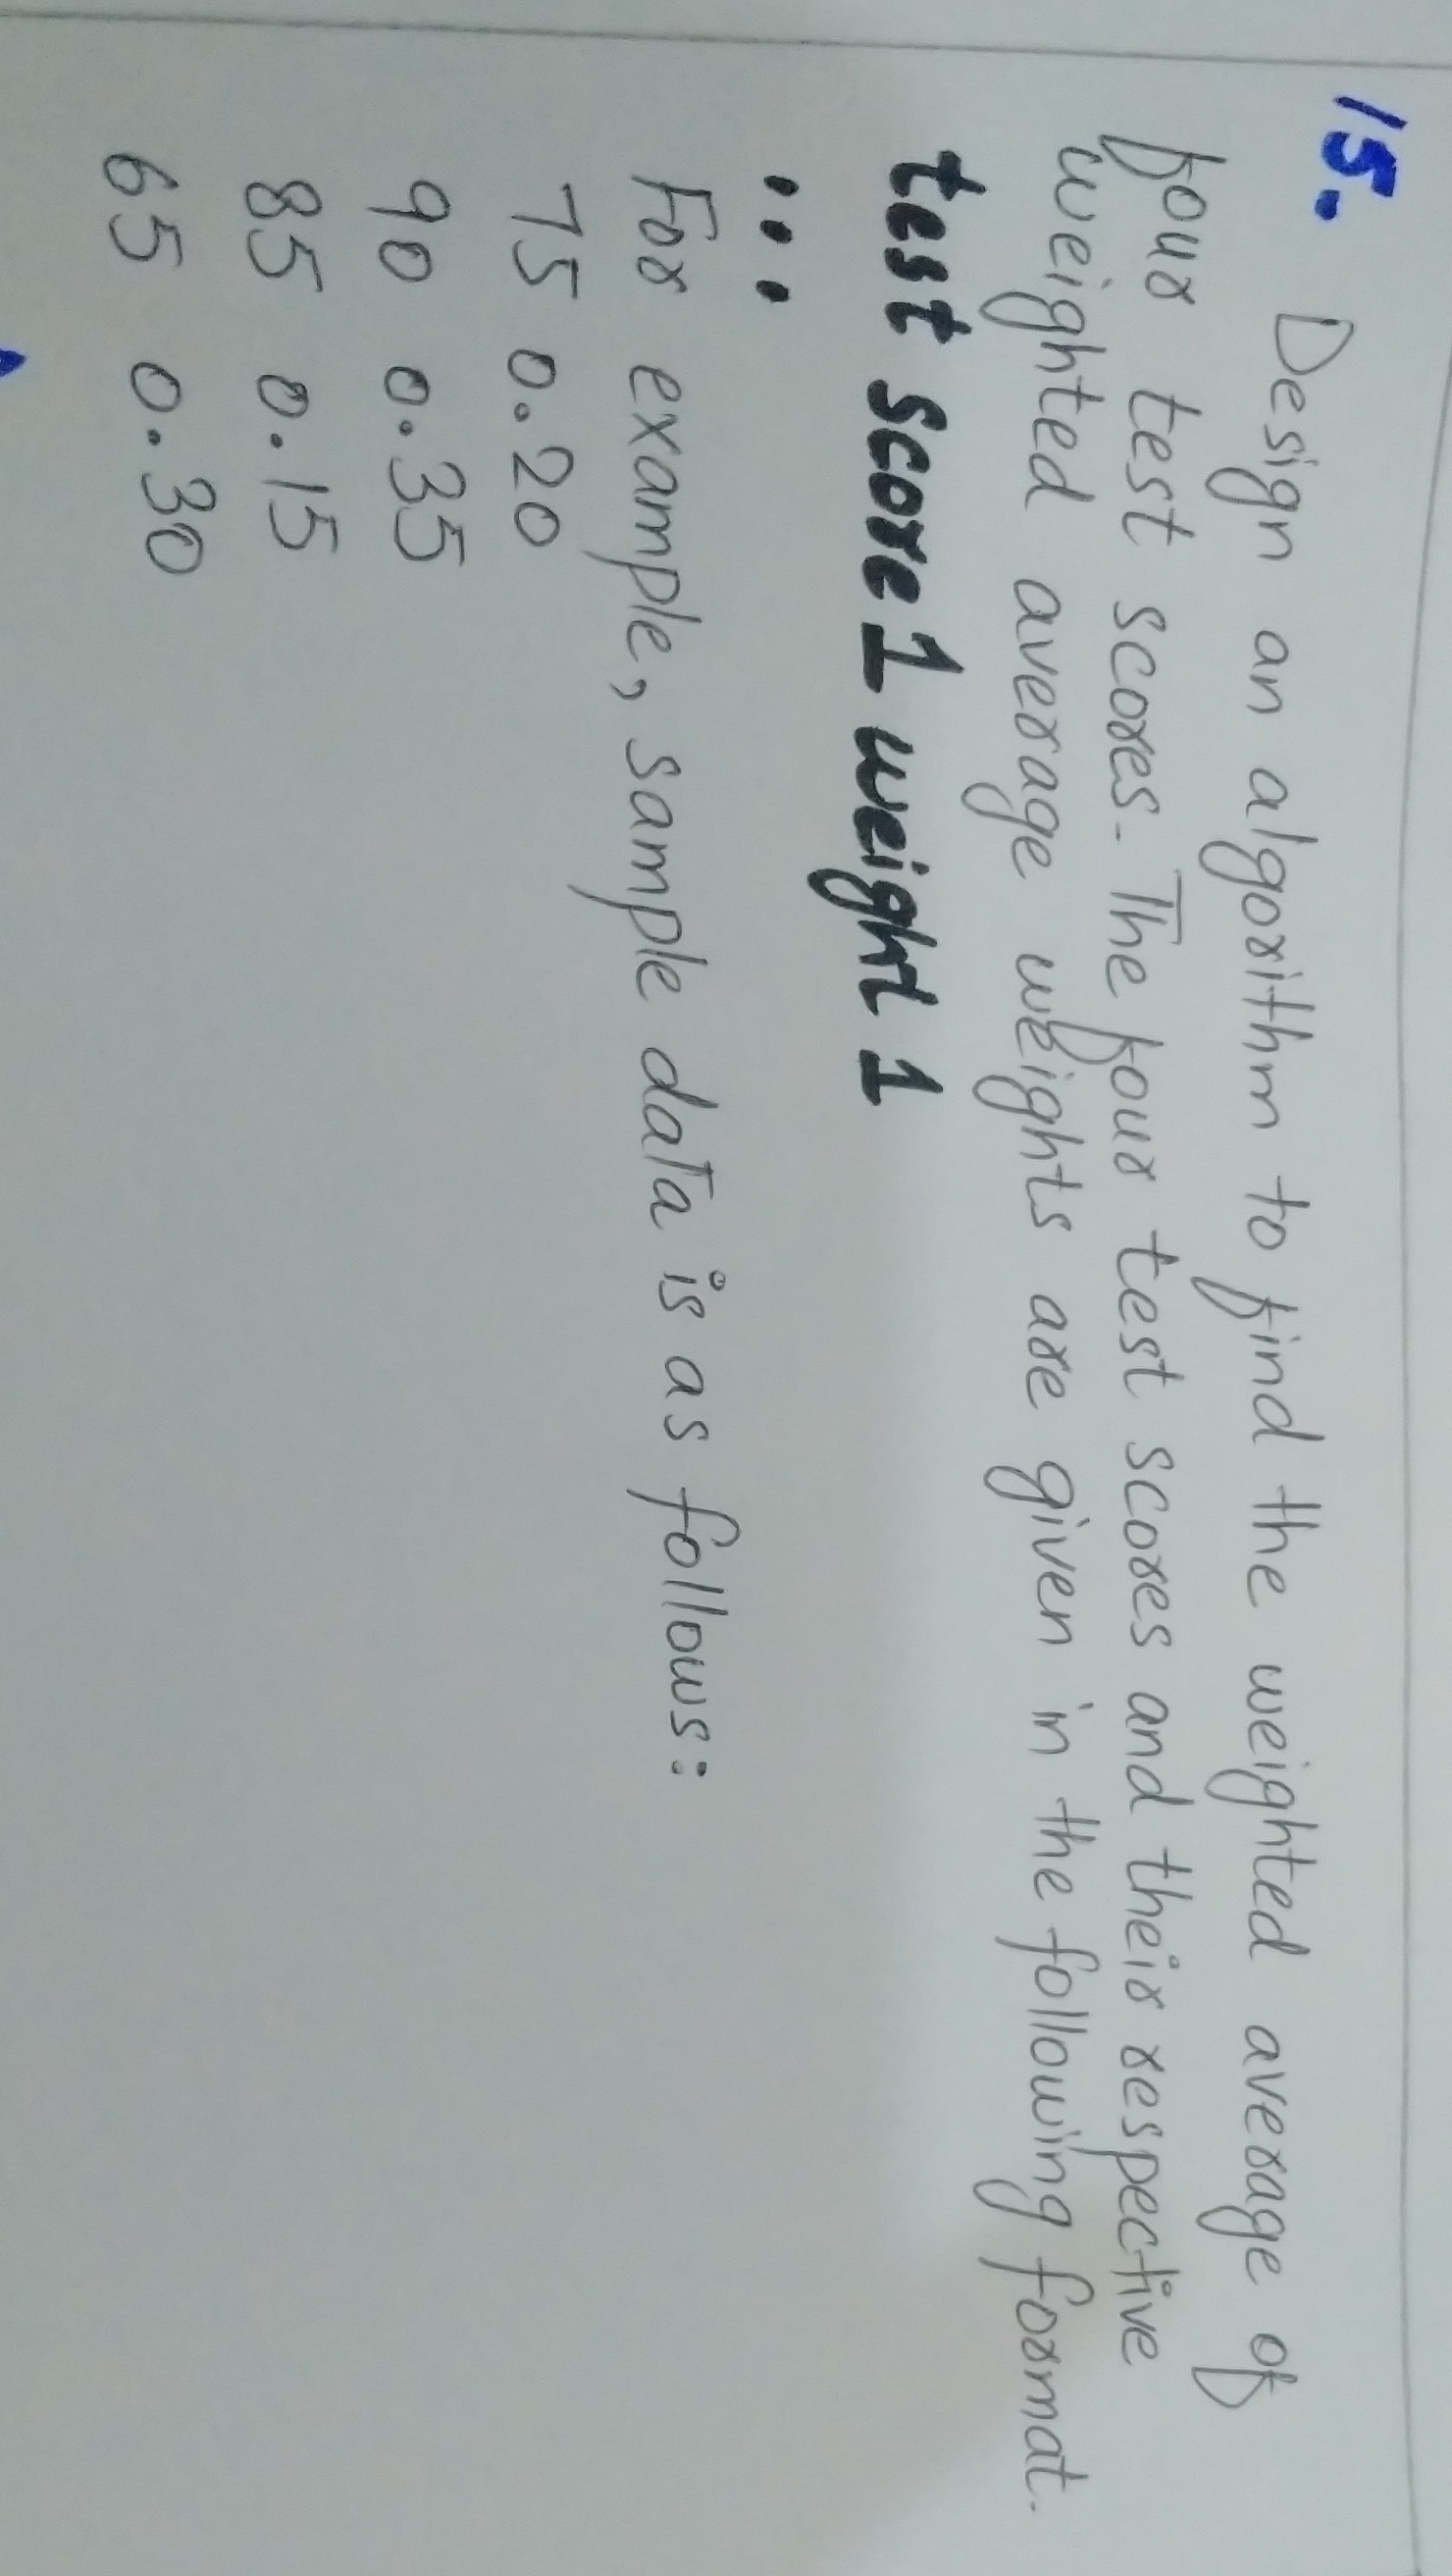 15. Design an algorithm to find the weighted average of
four test scores. The four test scores and their respective
weighted average weights are given in the following format.
test score 1 weight 1
...
For example, sample data is as follows:
75 0.20
90 0.35
85 0.15
65 0.30